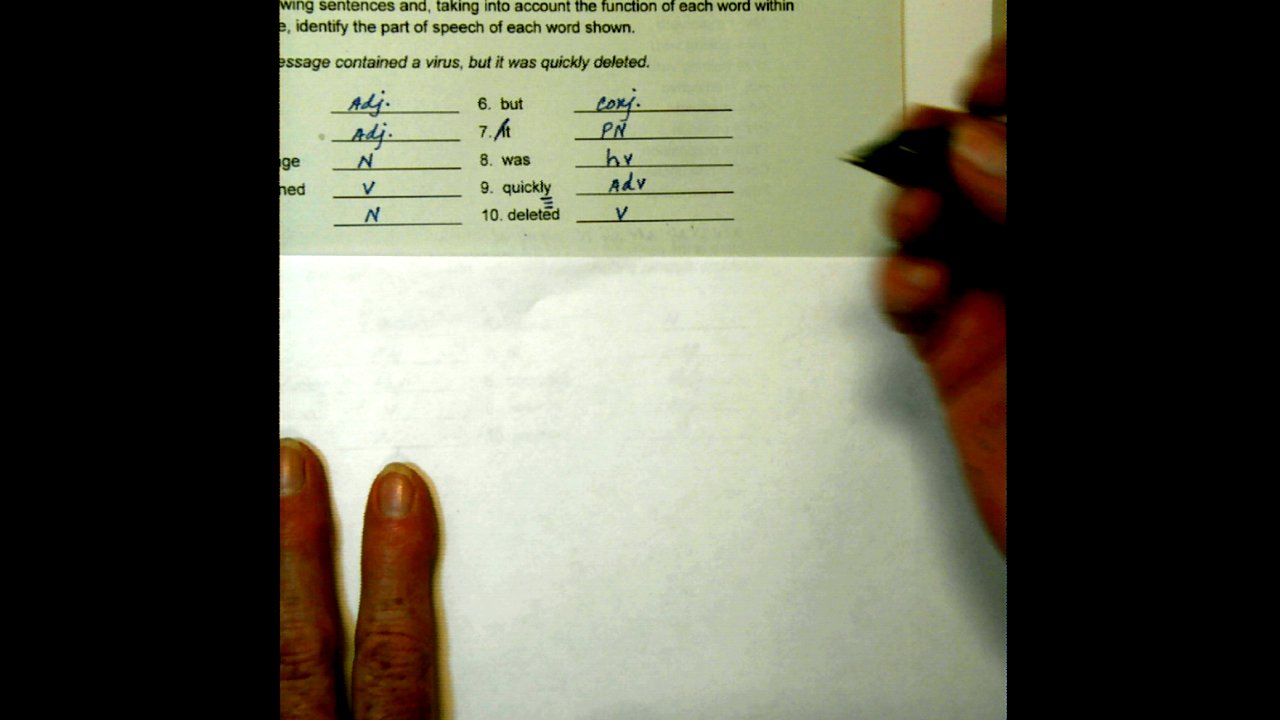 wing sentences and, taking into account the function of each word within
e, identify the part of speech of each word shown.
essage contained a virus, but it was quickly deleted.
Adj. 6. but conj.
Adj. 7. it PN
ge N 8. was hv
ned V 9. quickly Adv
N 10. deleted V